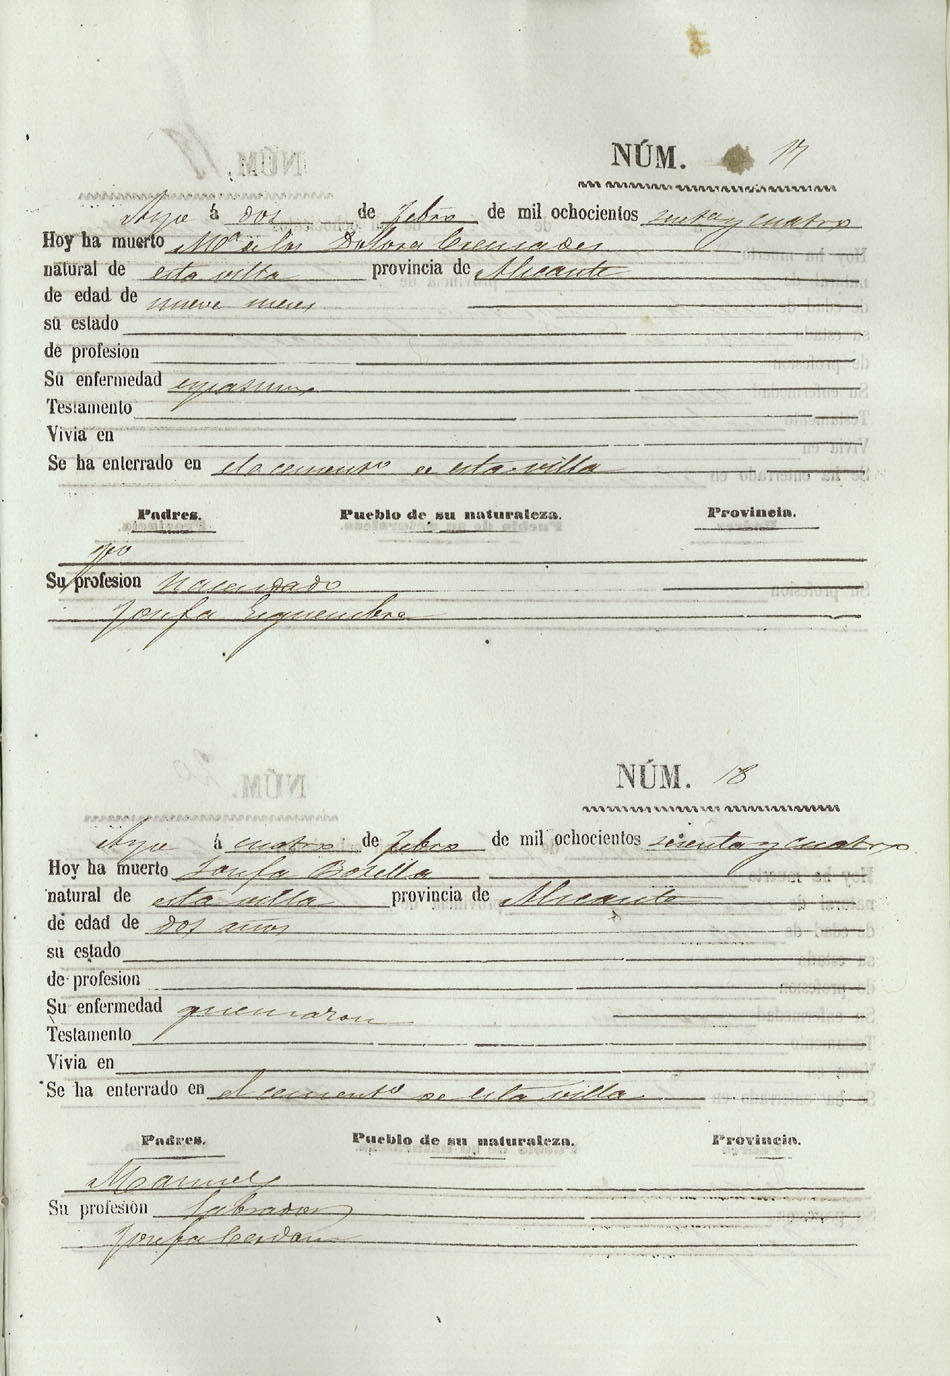 NÚM. 17
á dos de Febro de mil ochocientos senta y cuatro
Hoy ha muerto Mª de los Dolores Cremades
natural de esta villa provincia de Alicante
de edad de nueve meses
su estado
de profesion
Su enfermedad espasmo
Testamento
Vivia en
Se ha enterrado en el cementº de esta villa
Padres. Pueblo de su naturaleza. Provincia.
Su profesion hacendado
Josefa
NÚM. 18
á cuatro de Febro de mil ochocientos sesenta y cuatro
Hoy ha muerto Josefa Botella
natural de esta villa provincia de Alicante
de edad de dos años
su estado
de profesion
Su enfermedad quemazon
Testamento
Vivia en
Se ha enterrado en el cementº de esta villa
Padres. Pueblo de su naturaleza. Provincia.
Manuel
Su profesion labrador
Josefa Cerdan